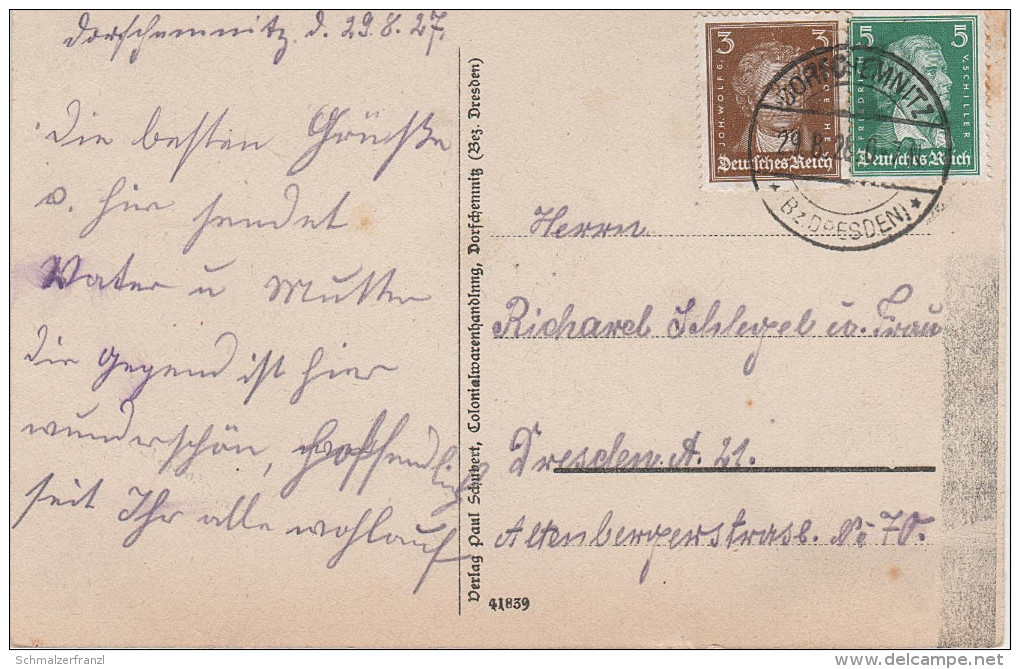 Dorschemnitz. d. 29.8.27.
Die besten Grüße
v. hier sendet
Vater u Mutter
die Gegend ist hier
wunderschön, hoffendlich
seit Ihr alle wohlauf
Verlag Paul Schubert, Colonialwarenhandlung, Dorfchemnitz (Bez. Dresden)
41839
3 3
JOH. WOLFG.
Deutsches Reich
5 5
FRIEDRICH
V. SCHILLER
Deutsches Reich
DORFCHEMNITZ
29.8.
* (Bz. DRESDEN) *
Herrn
Richard Schlegel u. Frau
Dresden. A. 21.
Altenbergerstrass. No 70.
Schmalzerfranzl
delcampe.net